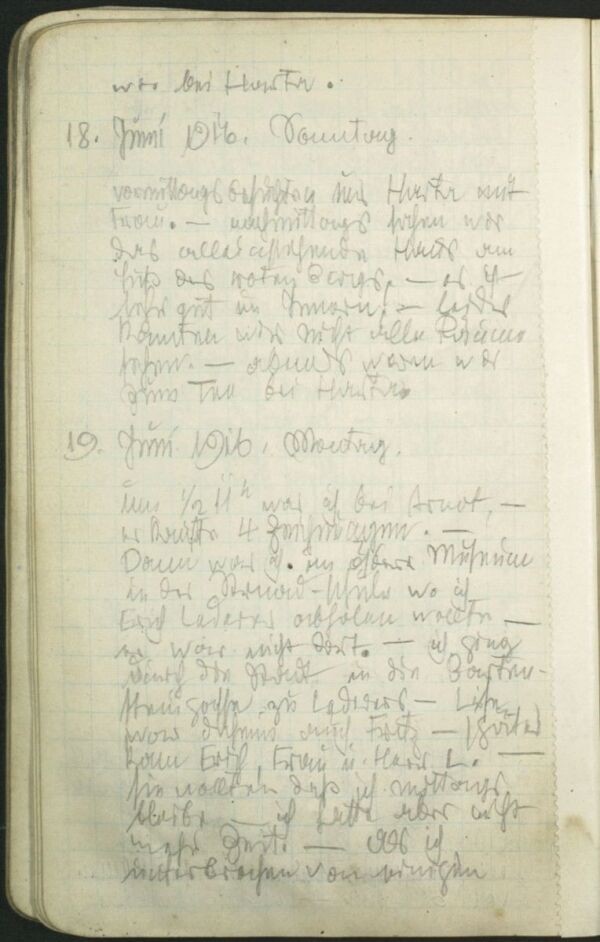 wir bei Harta.
18. Juni 1916. Sonntag.
vormittags besuchten uns Harta mit
Frau. — nachmittags sahen wir
das alleinstehende Haus am
Fuß des roten Bergs. — es ist
sehr gut im Innern. — leider
konnten wir nicht alle Räume
sehen. — abends waren wir
zum Tee bei Harta.
19. Juni 1916. Montag.
Um ½ 11ʰ war ich bei Arnot, —
er kaufte 4 Zeichnungen. —
Dann war ich im Museum
in der schule wo ich
Erich Lederer abholen wollte —
er war nicht dort. — ich ging
durch die Stadt in die Barten-
steingasse zu Lederers —
war daheim auch Fritz — später
kam Erich, Frau u. Herr L. —
sie wollten daß ich mittags
bleibe — ich hatte aber nicht
mehr Zeit. — Aß ich
unterbrochen von einigen